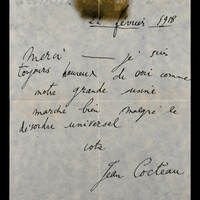 22 février 1918
Merci — je suis
toujours heureux de voir comme
notre grande usine
marche bien malgré le
désordre universel
votre
Jean Cocteau